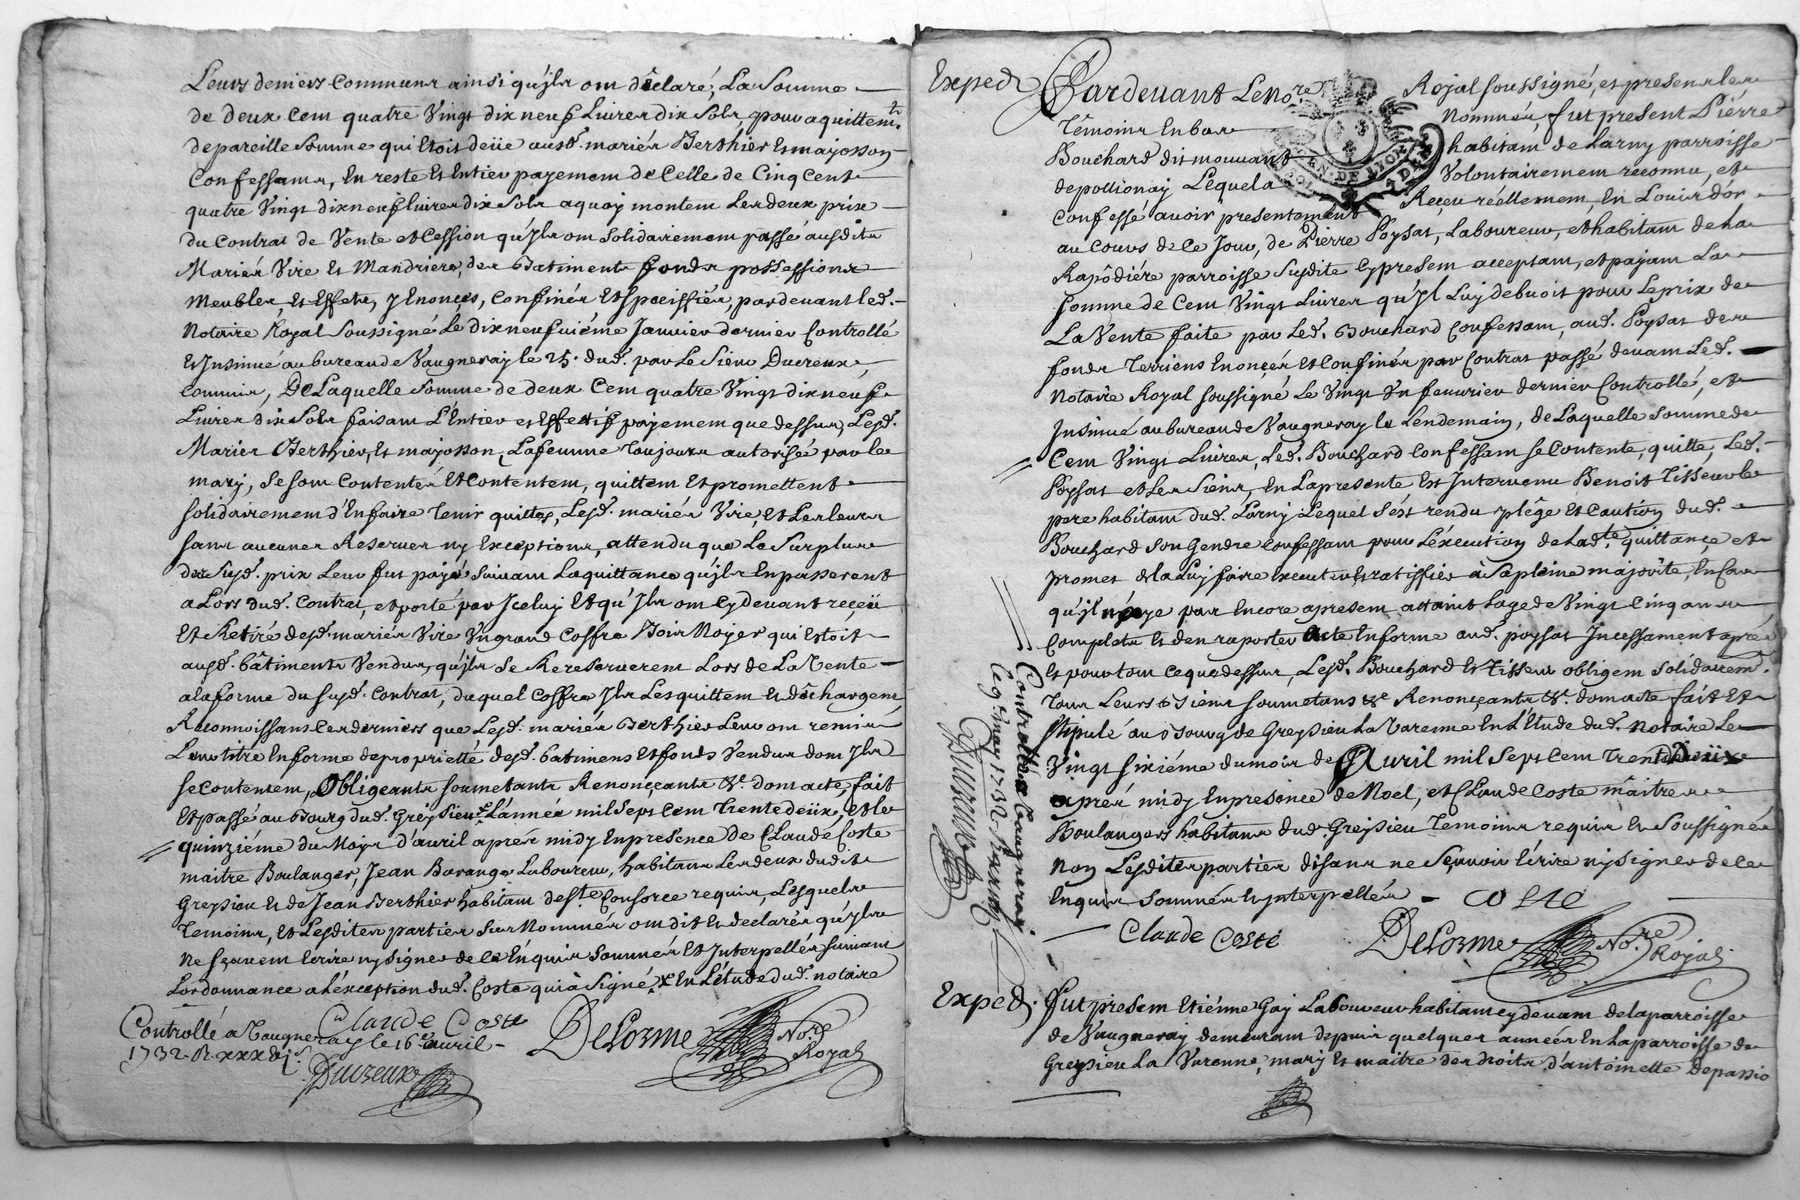 Leurs deniers Communs ainsi qu'jls ont déclaré, La Somme
de deux Cent quatre Vingt dix neuf Livres dix Sols pour aquittemt.
de pareille Somme qui Etoit deüe ausd. mariés Berthier Et majosson
Confessants, En reste Et Entier payement de Celle de Cinq Cent
quatre Vingt dix neuf livres dix Sols a quoy montent Les deux prix
du Contrat de Vente et Cession qu'jls ont Solidairement passé ausdits
Mariés Vire Et Mandriere, des Batiments fonds possessions
Meubles, Et Effets, y Enoncés, Confinés Et Specissiés, pardevant led.
Notaire Royal Soussigné Le dix neufuiéme Janvier dernier Controllé
Et Insinué au bureau de Vaugneray le 25. dud. par Le Sieur Ducreux,
Commis, De Laquelle Somme de deux Cent quatre Vingt dix neuf
Livres dix Sols faisant L'Entier et Effectif payement que dessus, Lesd.
Mariés Berthier, Et majosson, La femme Toujours autorisée par le
mary, Se Sont Contentés Et Contentent, quittent Et promettent
Solidairement d'En faire Tenir quittes, Lesd. mariés Vire, Et Les leurs
Sans aucunes Reserves ny Exceptions, attendu que Le Surplus
du Susd. prix Leur fut payé Suivant La quittance qu'jls En passerent
a Lors dud. Contrat, et porté par Jceluy Et qu'Jls ont Cy devant reçeü
Et Retiré desd. mariés Vire Un grand Coffre Bois Noyer qui Estoit
ausd. bâtiments Vendus, qu'jls Se Reserverent Lors de La Vente
a la forme du Susd. Contrat, duquel Coffre Jls Les quittent Et déchargent
Reconnoissant Ces derniers que Lesd. mariés Berthier Leur ont remis
Leur titre En forme de proprieté desd. batimens Et fonds Vendus dont Jls
se Contentent, Obligeants Soumettants Renonçants &c. dont acte, fait
Et passé au Bourg dud. Greysieu x L'année mil Sept Cent Trente deüx, Et le
quinziéme du Moys d'avril aprés midy En presence de Claude Coste
maitre Boulanger, Jean Barange Laboureur, habitants Les deux dudit
Greysieu Et de Jean Berthier habitant de Ste Consorce requis, Lesquels
Temoins, Et Lesdites parties Sus Nommés ont dit Et declarés qu'jls
Ne Sçavent Ecrire ny Signer de Ce Enquis Sommés Et Interpellés Suivant
Lordonnance a L'exception dud. Coste qui à Signé x En L'étude dud. notaire
Claude Coste
Delorme Nore. Royal
Controllé a Vaugneray le 16e avril
1732. R. xxx
Ducreux
Exped. Pardevant Le Nore. Royal Soussigné, et presents les
Témoins En bas Nommés, fut present Pierre
Bouchard dit mouvant habitant de Larny parroisse
de pollionay Lequel a Volontairement reconnu, et
Confessé avoir presentement Reçeu réellement, En Louis d'or
au Cours de Ce Jour, de Pierre Poysat, Laboureur, et habitant de la
Rapôdiére parroisse Susdite Cy present acceptant, et payant La
somme de Cent Vingt Livres qu'Jl Luy debvoit pour Le prix de
La Vente faite par Led. Bouchard Confessant, aud. Poysat des
fonds Terriens Enonçés Et Confinés par Contrat passé devant Led.
Notaire Royal soussigné Le Vingt Un fevurier dernier Controllé, et
Insinué au bureau de Vaugneray le Lendemain, de Laquelle Somme de
Cent Vingt Livres, Led. Bouchard Confessant se Contente, quitte, Led.
Poysat et Les Siens, En La presente Est Intervenu Benoit Tisseur le
pere habitant dud. Larny Lequel S'ést rendu plége Et Caution dud.
Bouchard Son Gendre Confessant pour L'éxecution de Ladte. quittançe et
promet de la Luy faire executer Et ratiffier à Sa pleine majorité, En Cas
qu'jl n'aye pas Encore apresent attaint Lage de Vingt Cinq ans
Complets Et d'en raporter Acte En forme aud. poysat Incessament aprés
Et pour tout Ce que dessus, Lesd. Bouchard Et Tisseur obligent Solidairemt.
Tous Leurs Biens Soumettans &c Renonçants &c. dont acte fait Et
Stipulé au Bourg de Greysieu La Varenne En L'Etude dud. Notaire Le
Vingt Sixiéme du mois de Avril mil Sept Cent Trente Deüx
aprés midy En presence de Noel, et Claude Coste maitres
Boulangers habitans dud. Greysieu Temoins requis Et Soussignés
Non Lesdites parties disans ne Sçavoir Ecrire ny signer de Ce
Enquis Sommés Et Interpellés - COSTE
Claude Coste
Delorme Nore. Royal
Controllé a Vaugneray
Ce 9e. may 1732.
Ducreux
Exped. Fut present Etiénne Gay Laboureur habitant cy devant de la parroisse
de Vaugneray demeurant depuis quelques années En La parroisse de
Greysieu La Varenne, mary Et maitre des droits d'antoinette depassio